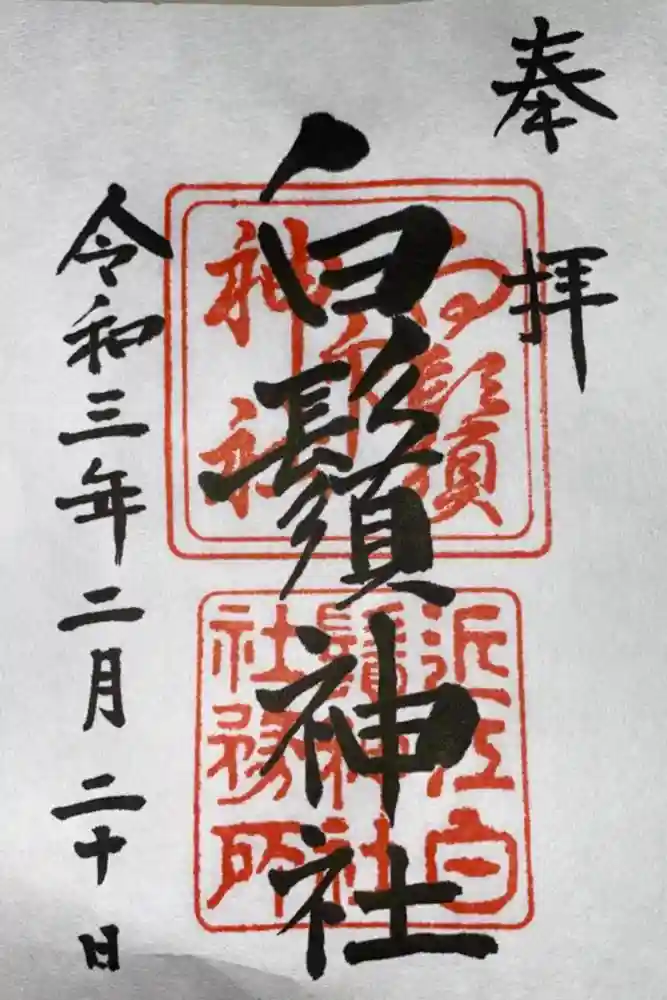 奉拝
白鬚神社
令和三年二月二十日
近江白
鬚神社
社務所